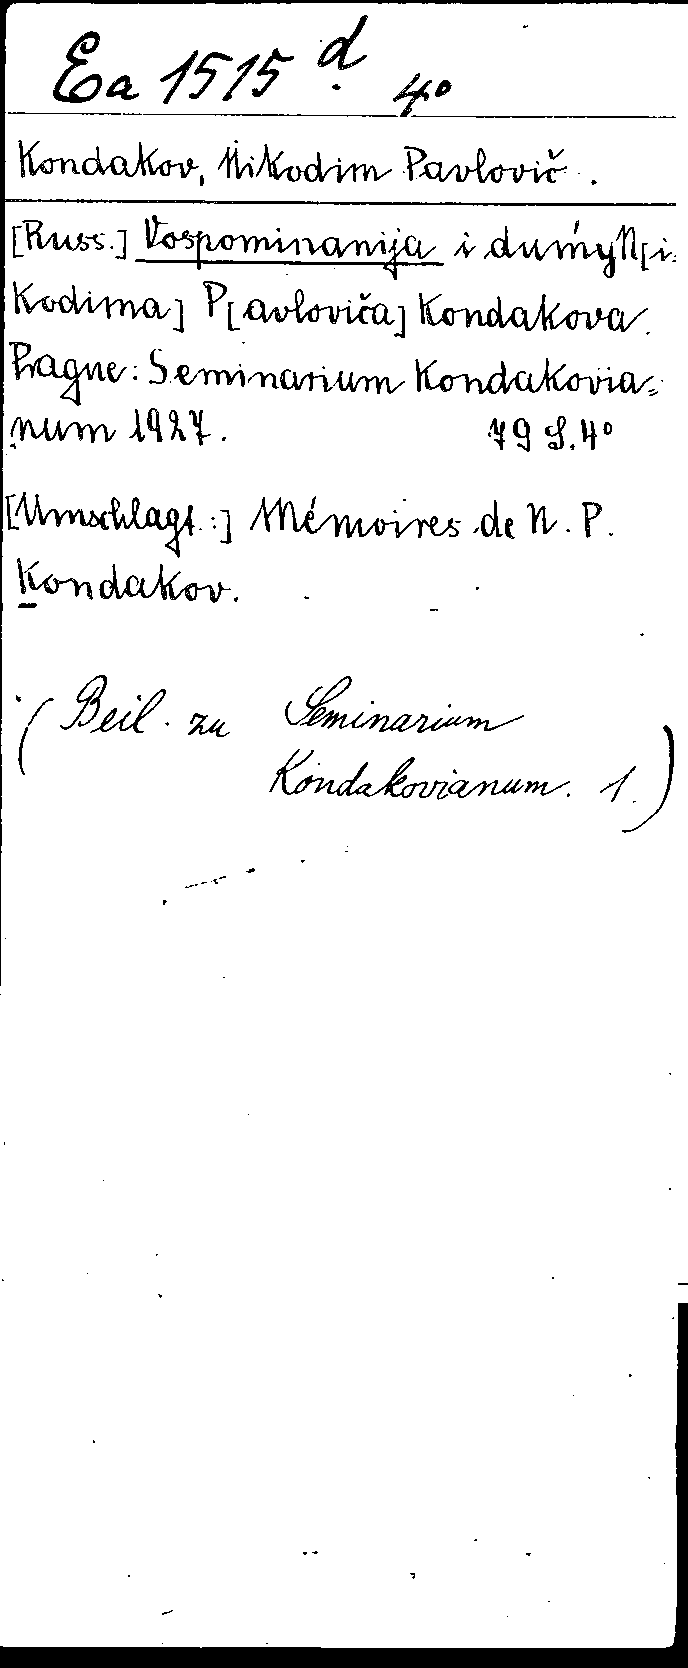 Ea 1515 d 4°
Kondakov, Nikodim Pavlovič.
[Russ.] Vospominanija i dumy N[i=
kodima] P[avloviča] Kondakova.
Prague: Seminarium Kondakovia=
num 1927. 79 S. 4°
[Umschlagt.:] Mémoires de N. P.
Kondakov.
(Beil. zu Seminarium
Kondakovianum. 1.)